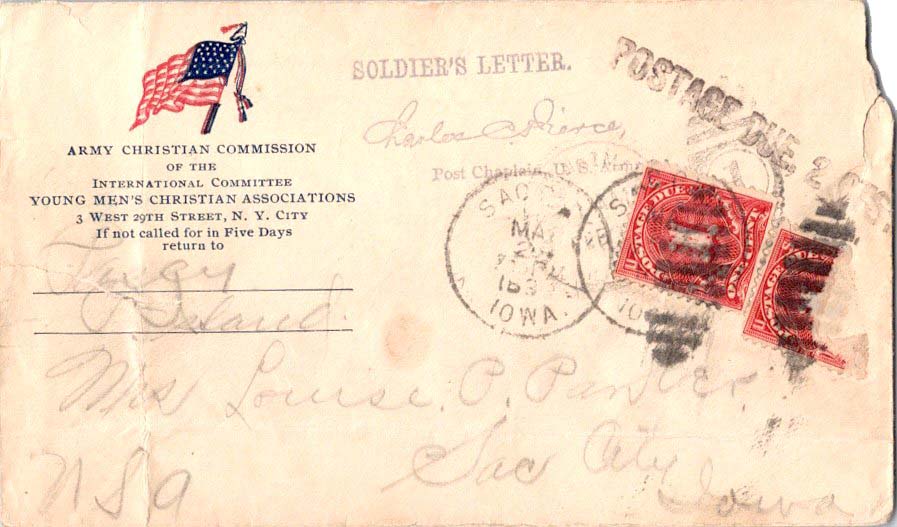 SOLDIER'S LETTER.
POSTAGE DUE 2
Charles C. Pierce,
Post Chaplain, U.S. Army
ARMY CHRISTIAN COMMISSION
OF THE
INTERNATIONAL COMMITTEE
YOUNG MEN'S CHRISTIAN ASSOCIATIONS
3 WEST 29TH STREET, N. Y. CITY
If not called for in Five Days
return to
Island
SAC
MAY
IOWA.
POSTAGE DUE
ONE CENT
POSTAGE DUE
Mrs Louise P.
Sac City
Iowa
USA